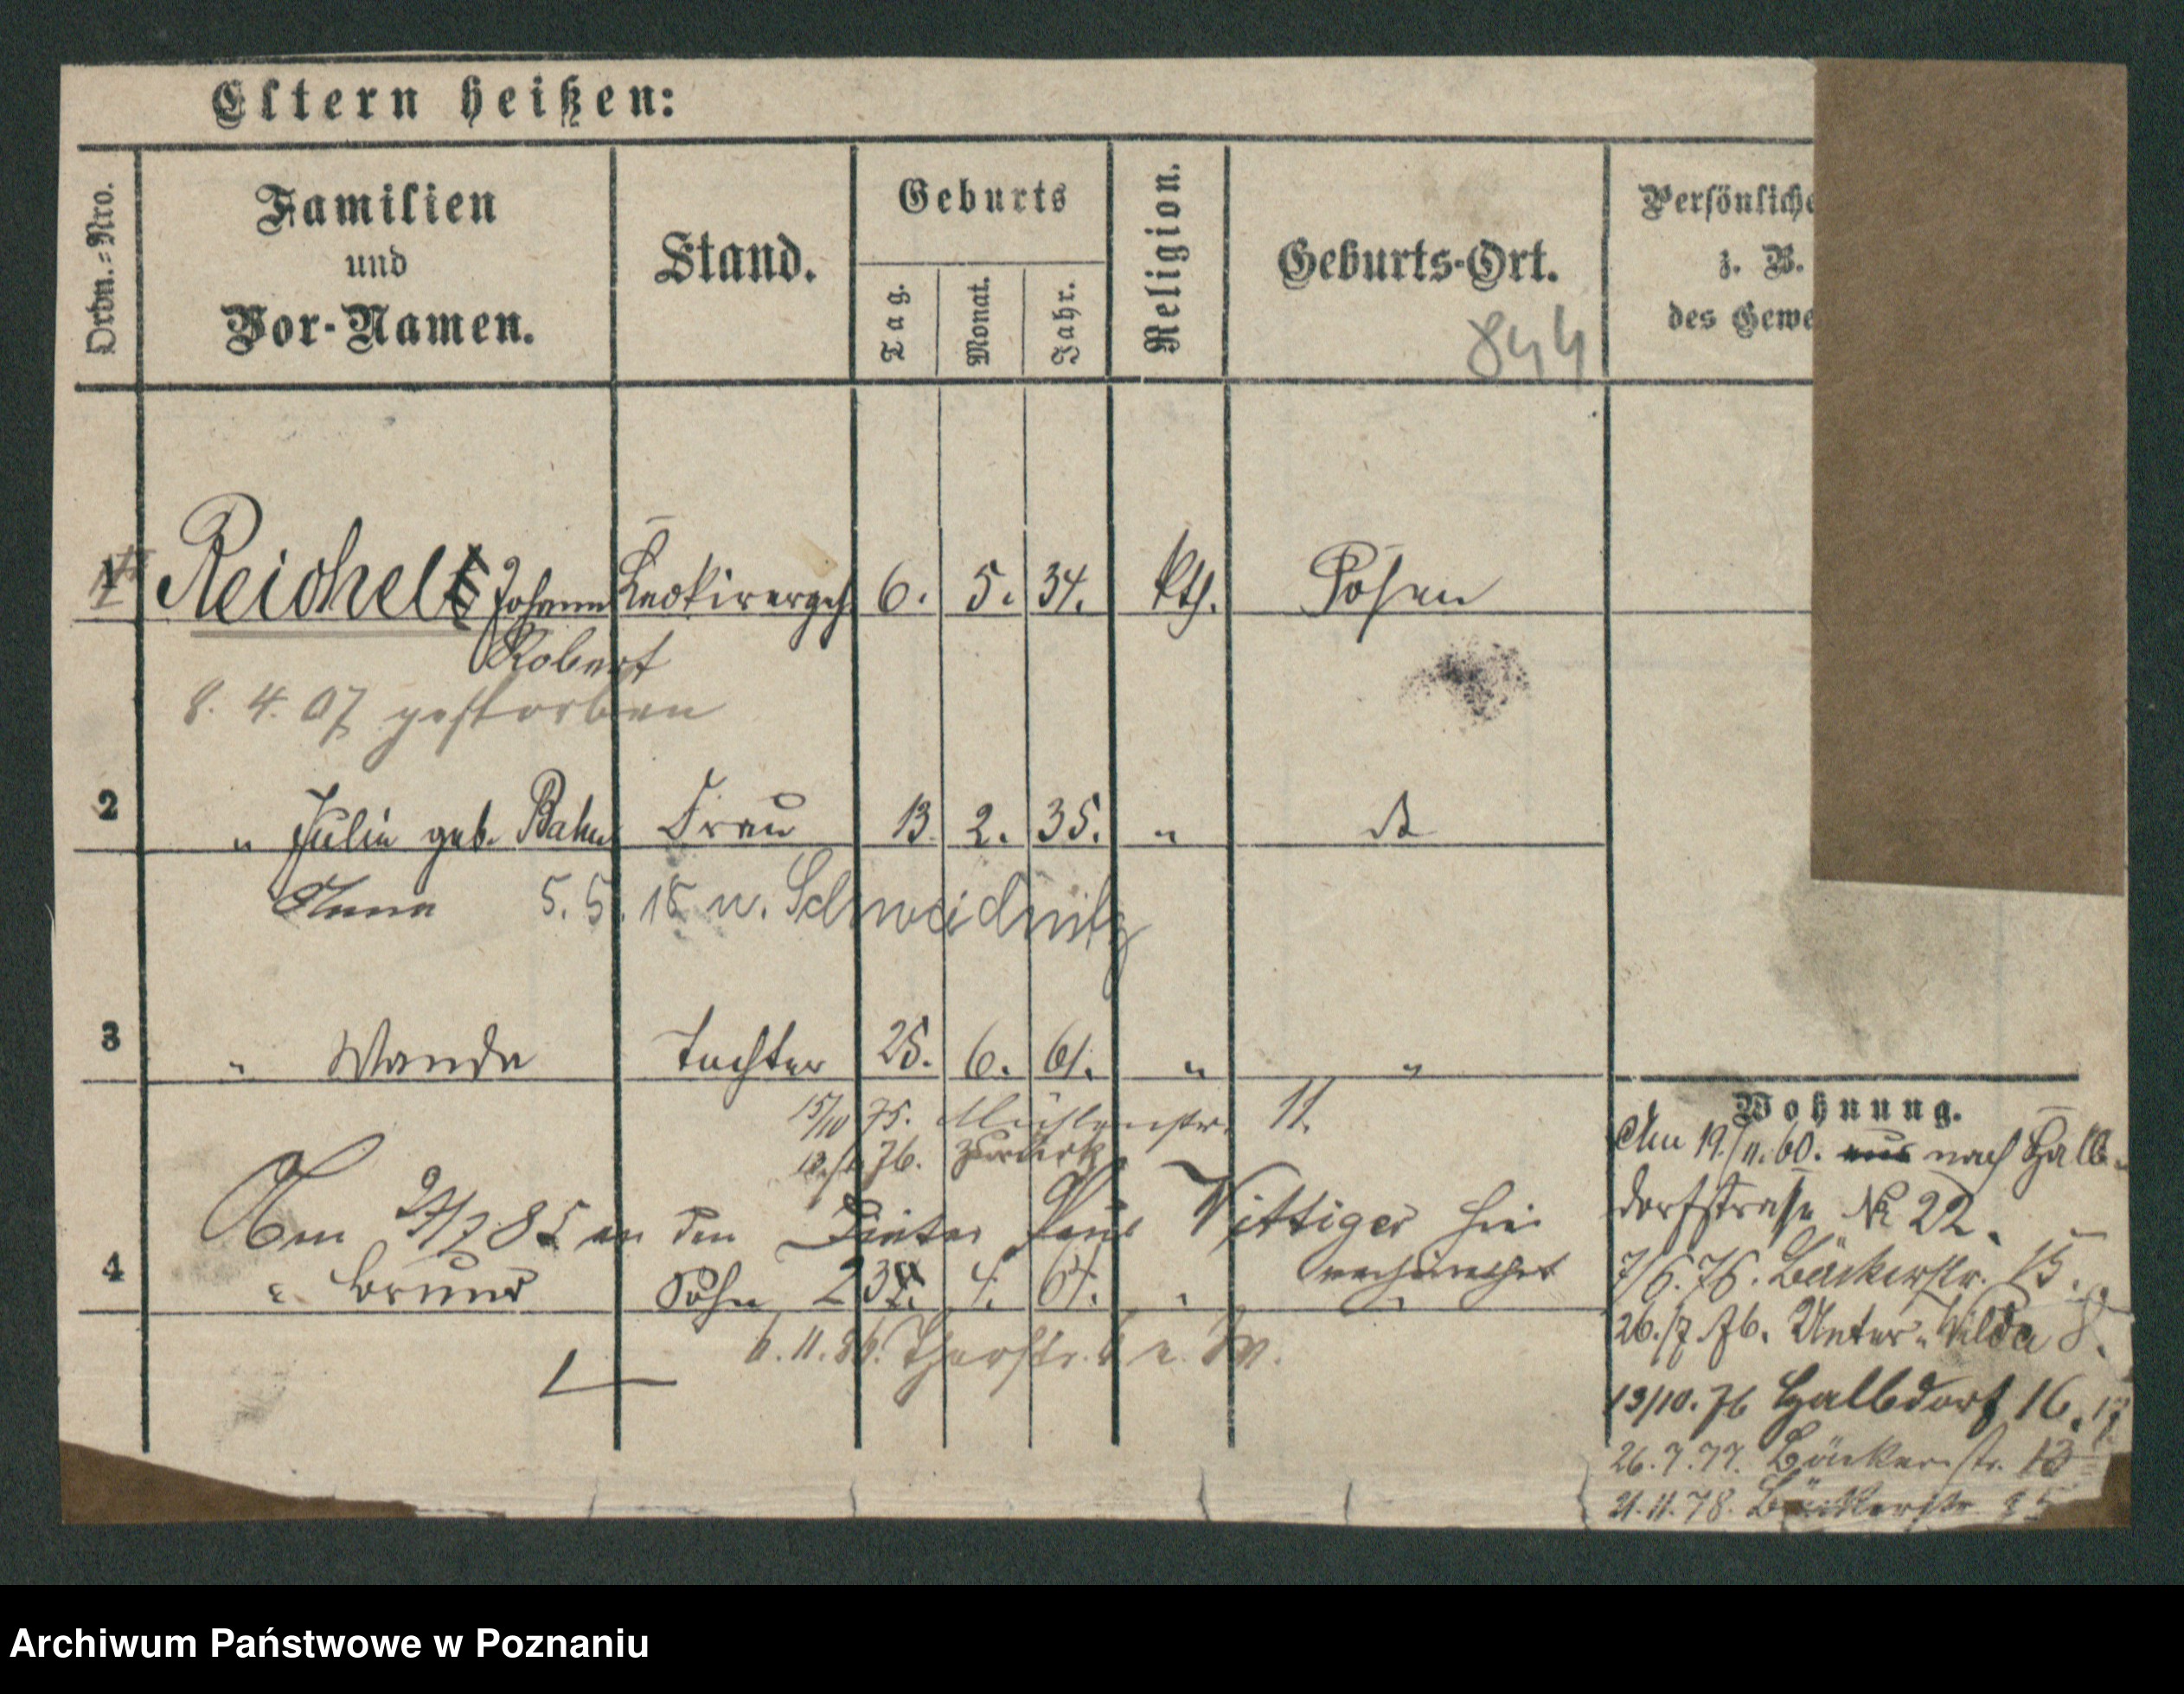 Eltern heißen:
Ordn.=Nro.
Familien
und
Vor-Namen.
Stand.
Geburts
Tag.
Monat.
Jahr.
Religion.
Geburts-Ort.
844
Persönliche
z. B.
des Gewe
1 Reichelt Johann Lackirergeh 6. 5. 34. kth. Posen
Robert
8. 4. 07 gestorben
2 " Julie geb. Bahn Frau 13. 2. 35. " dt
Anna 5. 5. 18 n. Schweidnitz
3 " Wanda Tochter 25. 6. 61. " "
15/10 75. Mühlenstr. 11.
76. zurück
Am 27/7 85 an den Paul Wittiger hier
verheirathet
4 " Bruno Sohn 23. 4. 64. "
6. 11. 86. Thorstr. 6 n. W.
Wohnung.
Am 19./11. 60. aus nach Halb-
dorfstraße № 22.
7/6. 76. Bäckerstr. 13.
26./7 76. Unter-Wilda 8.
13/10. 76 Halbdorf 16. 17
26. 7. 77. Bäckerstr. 13
21. 11. 78. Bäckerstr. 25
Archiwum Państwowe w Poznaniu